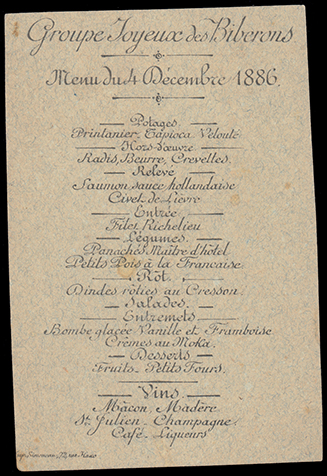 Groupe Joyeux des Biberons
Menu du 4 Décembre 1886.
Potages
Printanier. Tapioca Velouté
Hors-d'œuvre
Radis, Beurre, Crevettes.
Relevé
Saumon sauce hollandaise
Civet de Lièvre
Entrée
Filet Richelieu
Légumes.
Panachés Maître d'hôtel
Petits Pois à la Française
Rôt.
Dindes rôties au Cresson.
Salades.
Entremets
Bombe glacée Vanille et Framboise
Crèmes au Moka.
Desserts
Fruits - Petits Fours.
Vins.
Mâcon, Madère
St Julien - Champagne
Café - Liqueurs